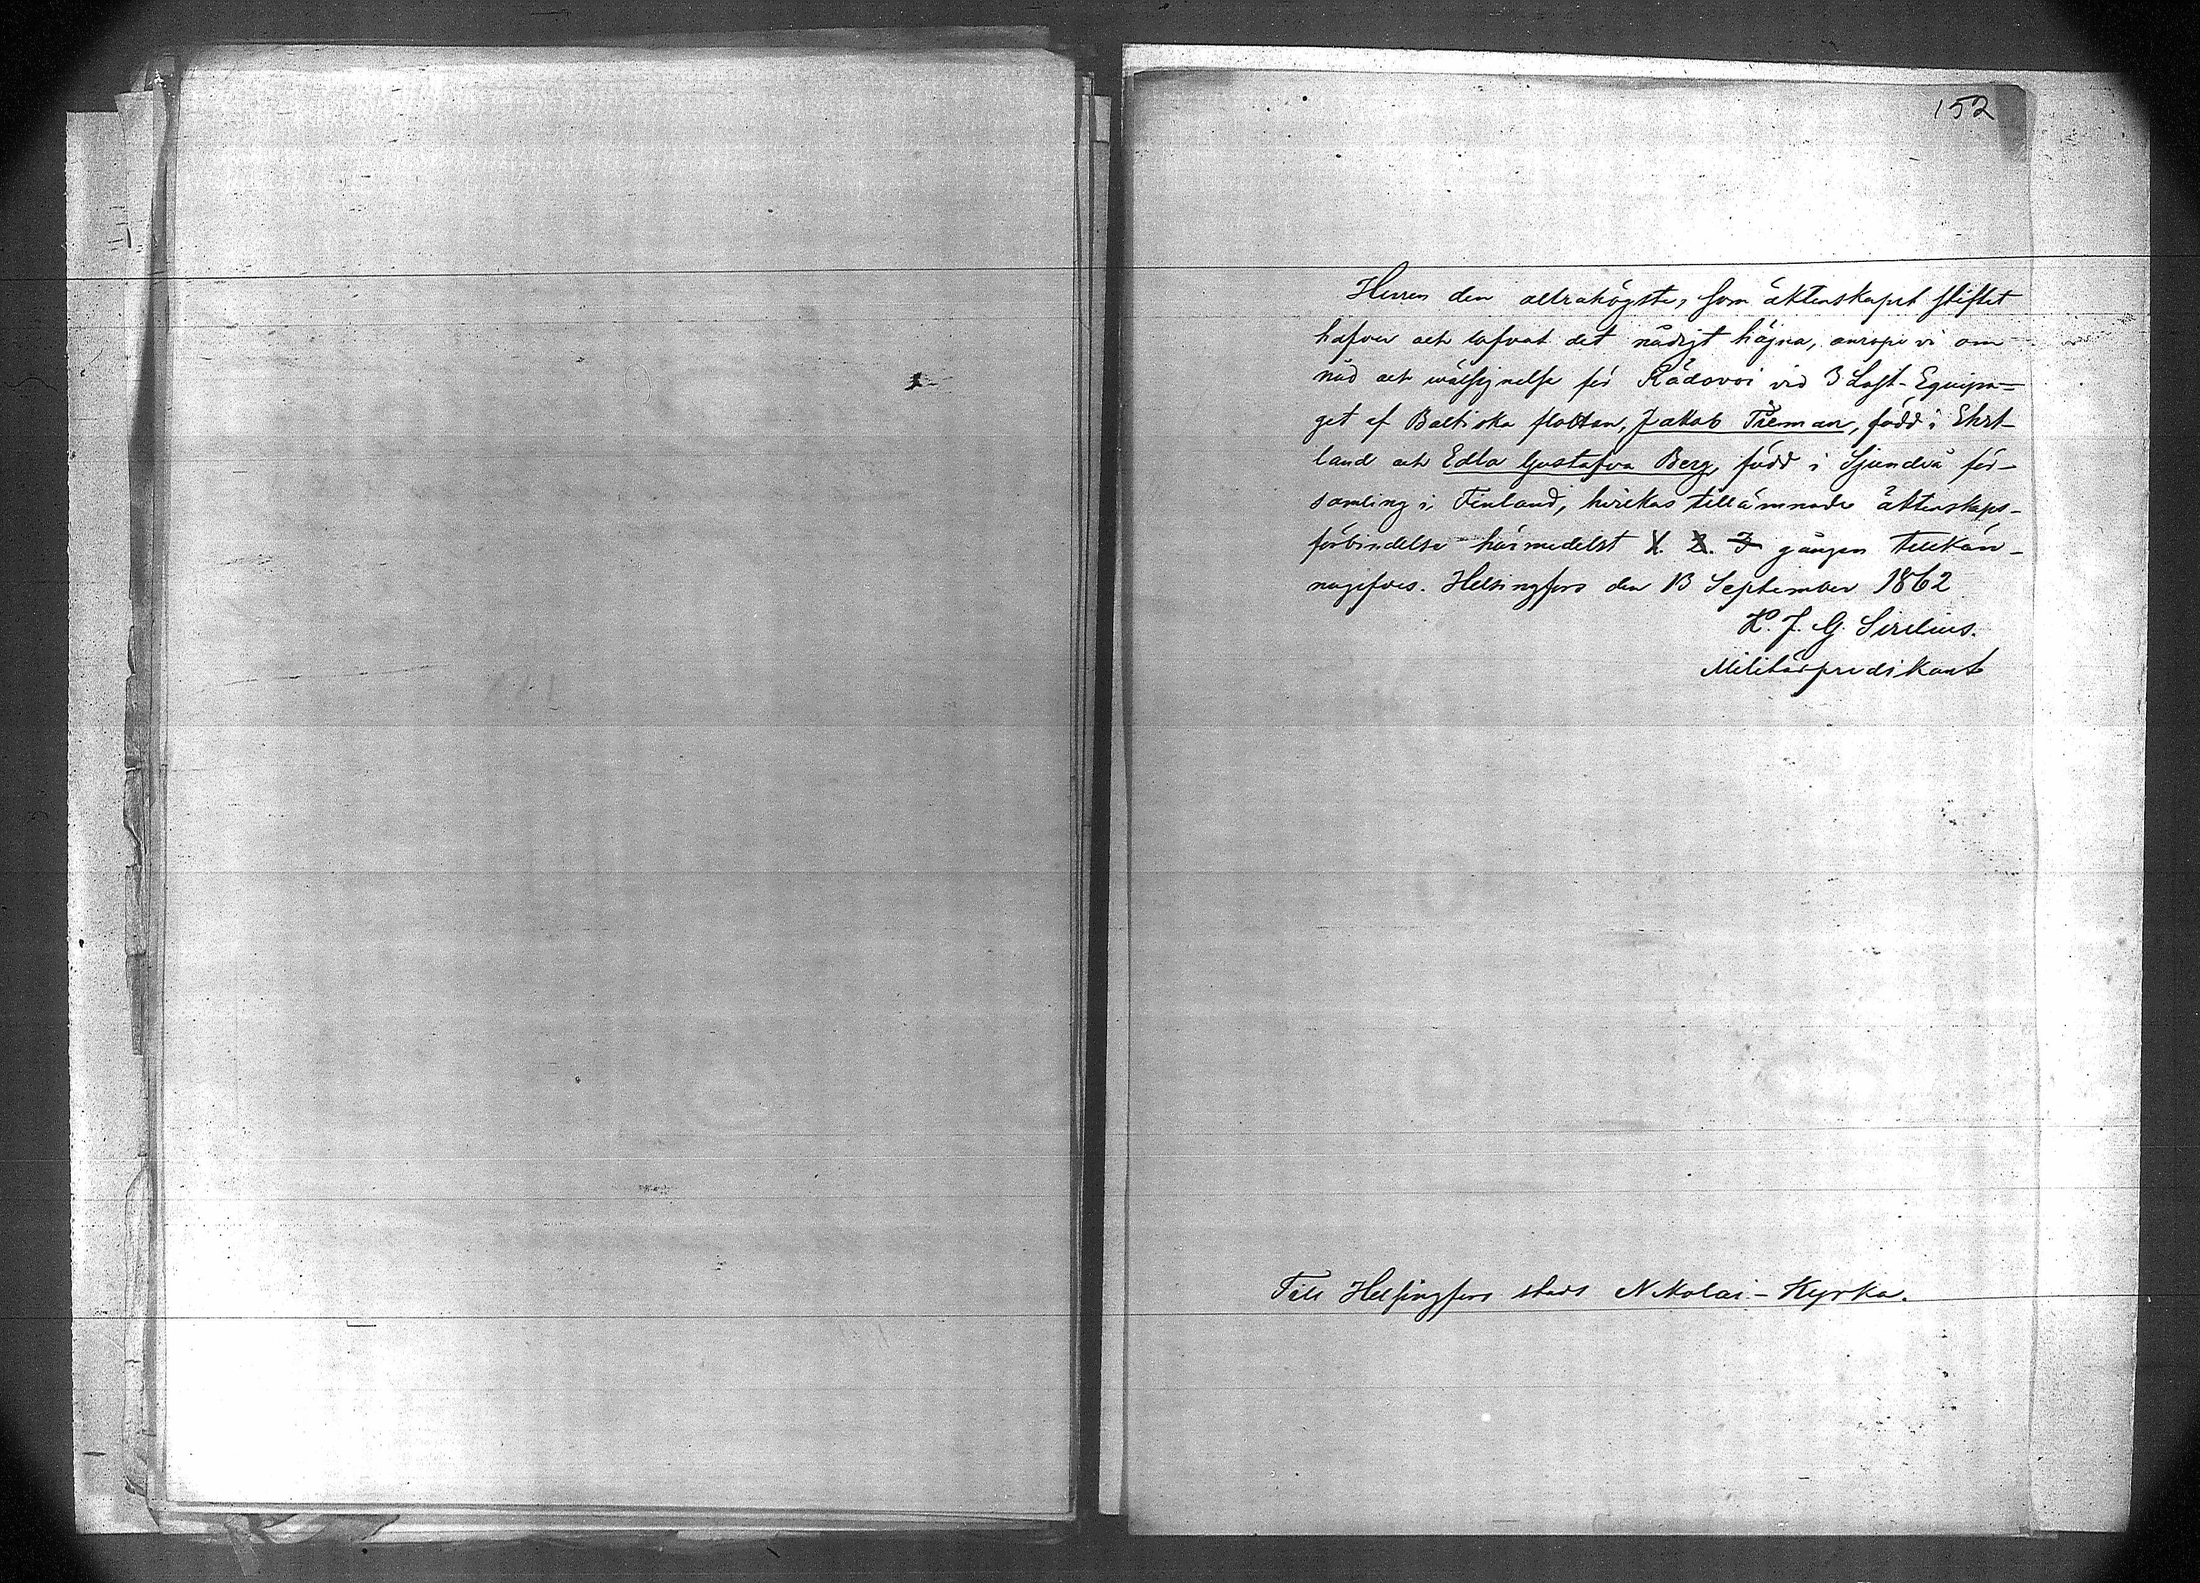 152
Herren den allrahögste, som äktenskapet stiftet
hafver och lofvat det nådigt hägna, anrope vi om
nåd och wälsignelse för Rädovoi vid 3 Last-Equipa-
get af Baltiska flottan, Jakob Tieman, född i Ehst-
land och Edla Gustafva Berg, född i Sjundeå för-
samling i Finland, hvilkas tillämnade äktenskaps-
förbindelse härmedelst 1. 2. 3 gången tillkän-
nagifves. Helsingfors den 13 September 1862
K. J. G. Sirelius.
Militärpredikant
Till Helsingfors stads Nikolai-Kyrka.